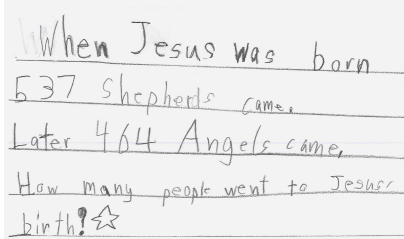 When Jesus was born
537 shepherds came.
Later 464 Angels came,
How many people went to Jesus'
birth!☆